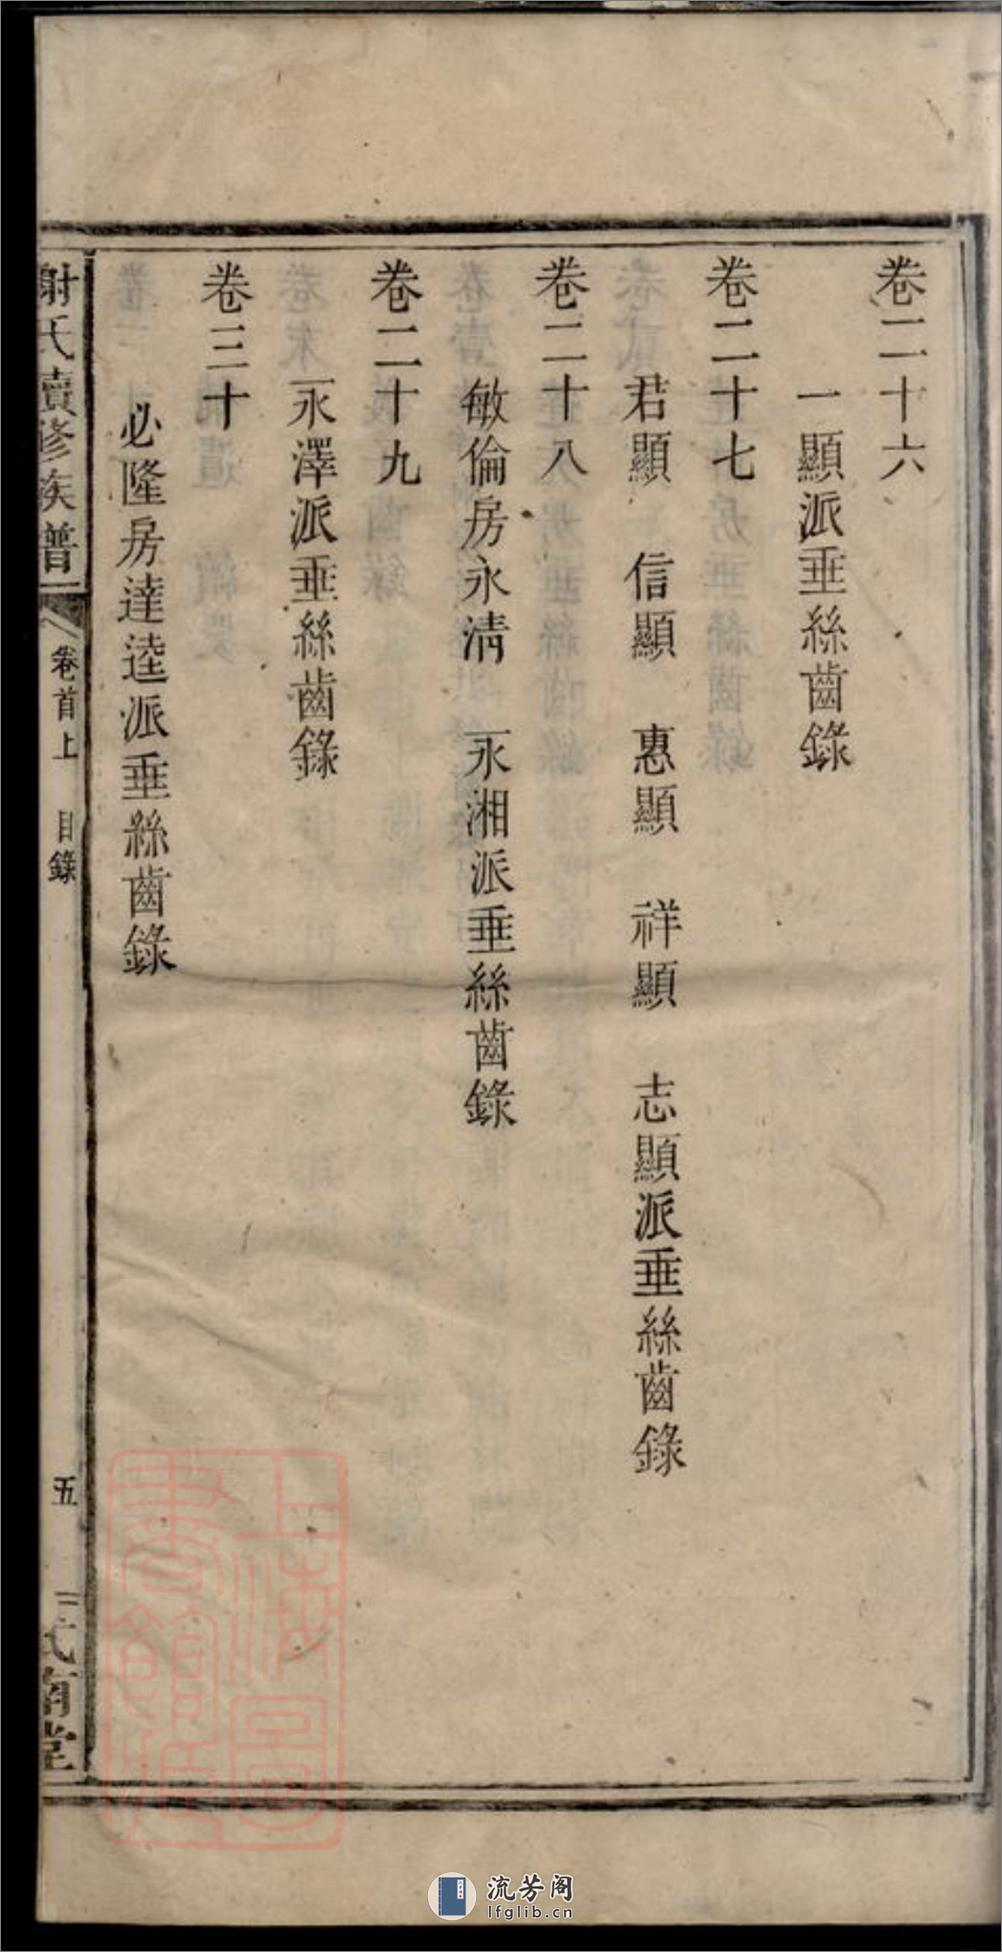 卷二十六
一顯派垂絲齒錄
卷二十七
君顯　信顯　惠顯　祥顯　志顯派垂絲齒錄
卷二十八
敏倫房永清　永湘派垂絲齒錄
卷二十九
永澤派垂絲齒錄
卷三十
必隆房達逵派垂絲齒錄
謝氏續修族譜
卷首上　目錄
五
堂
上海圖書館藏
流芳阁
lfglib.cn